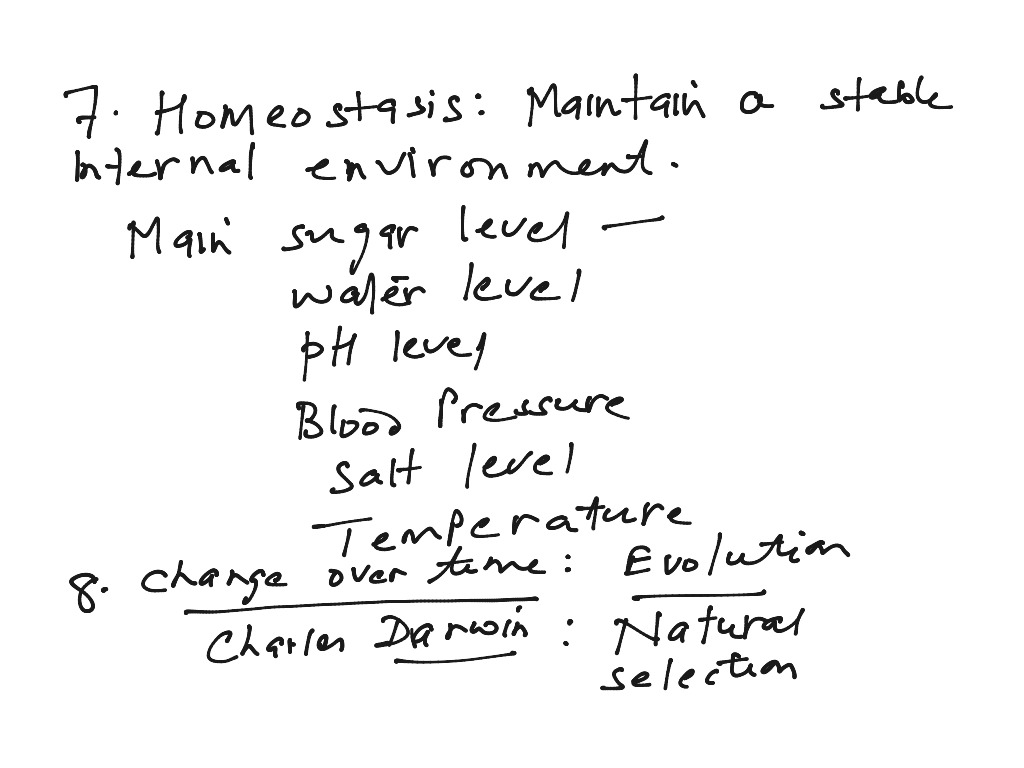 7. Homeostasis: Maintain a stable
internal environment.
Main sugar level —
water level
pH level
Blood Pressure
Salt level
Temperature
8. Change over time: Evolution
Charles Darwin: Natural
selection